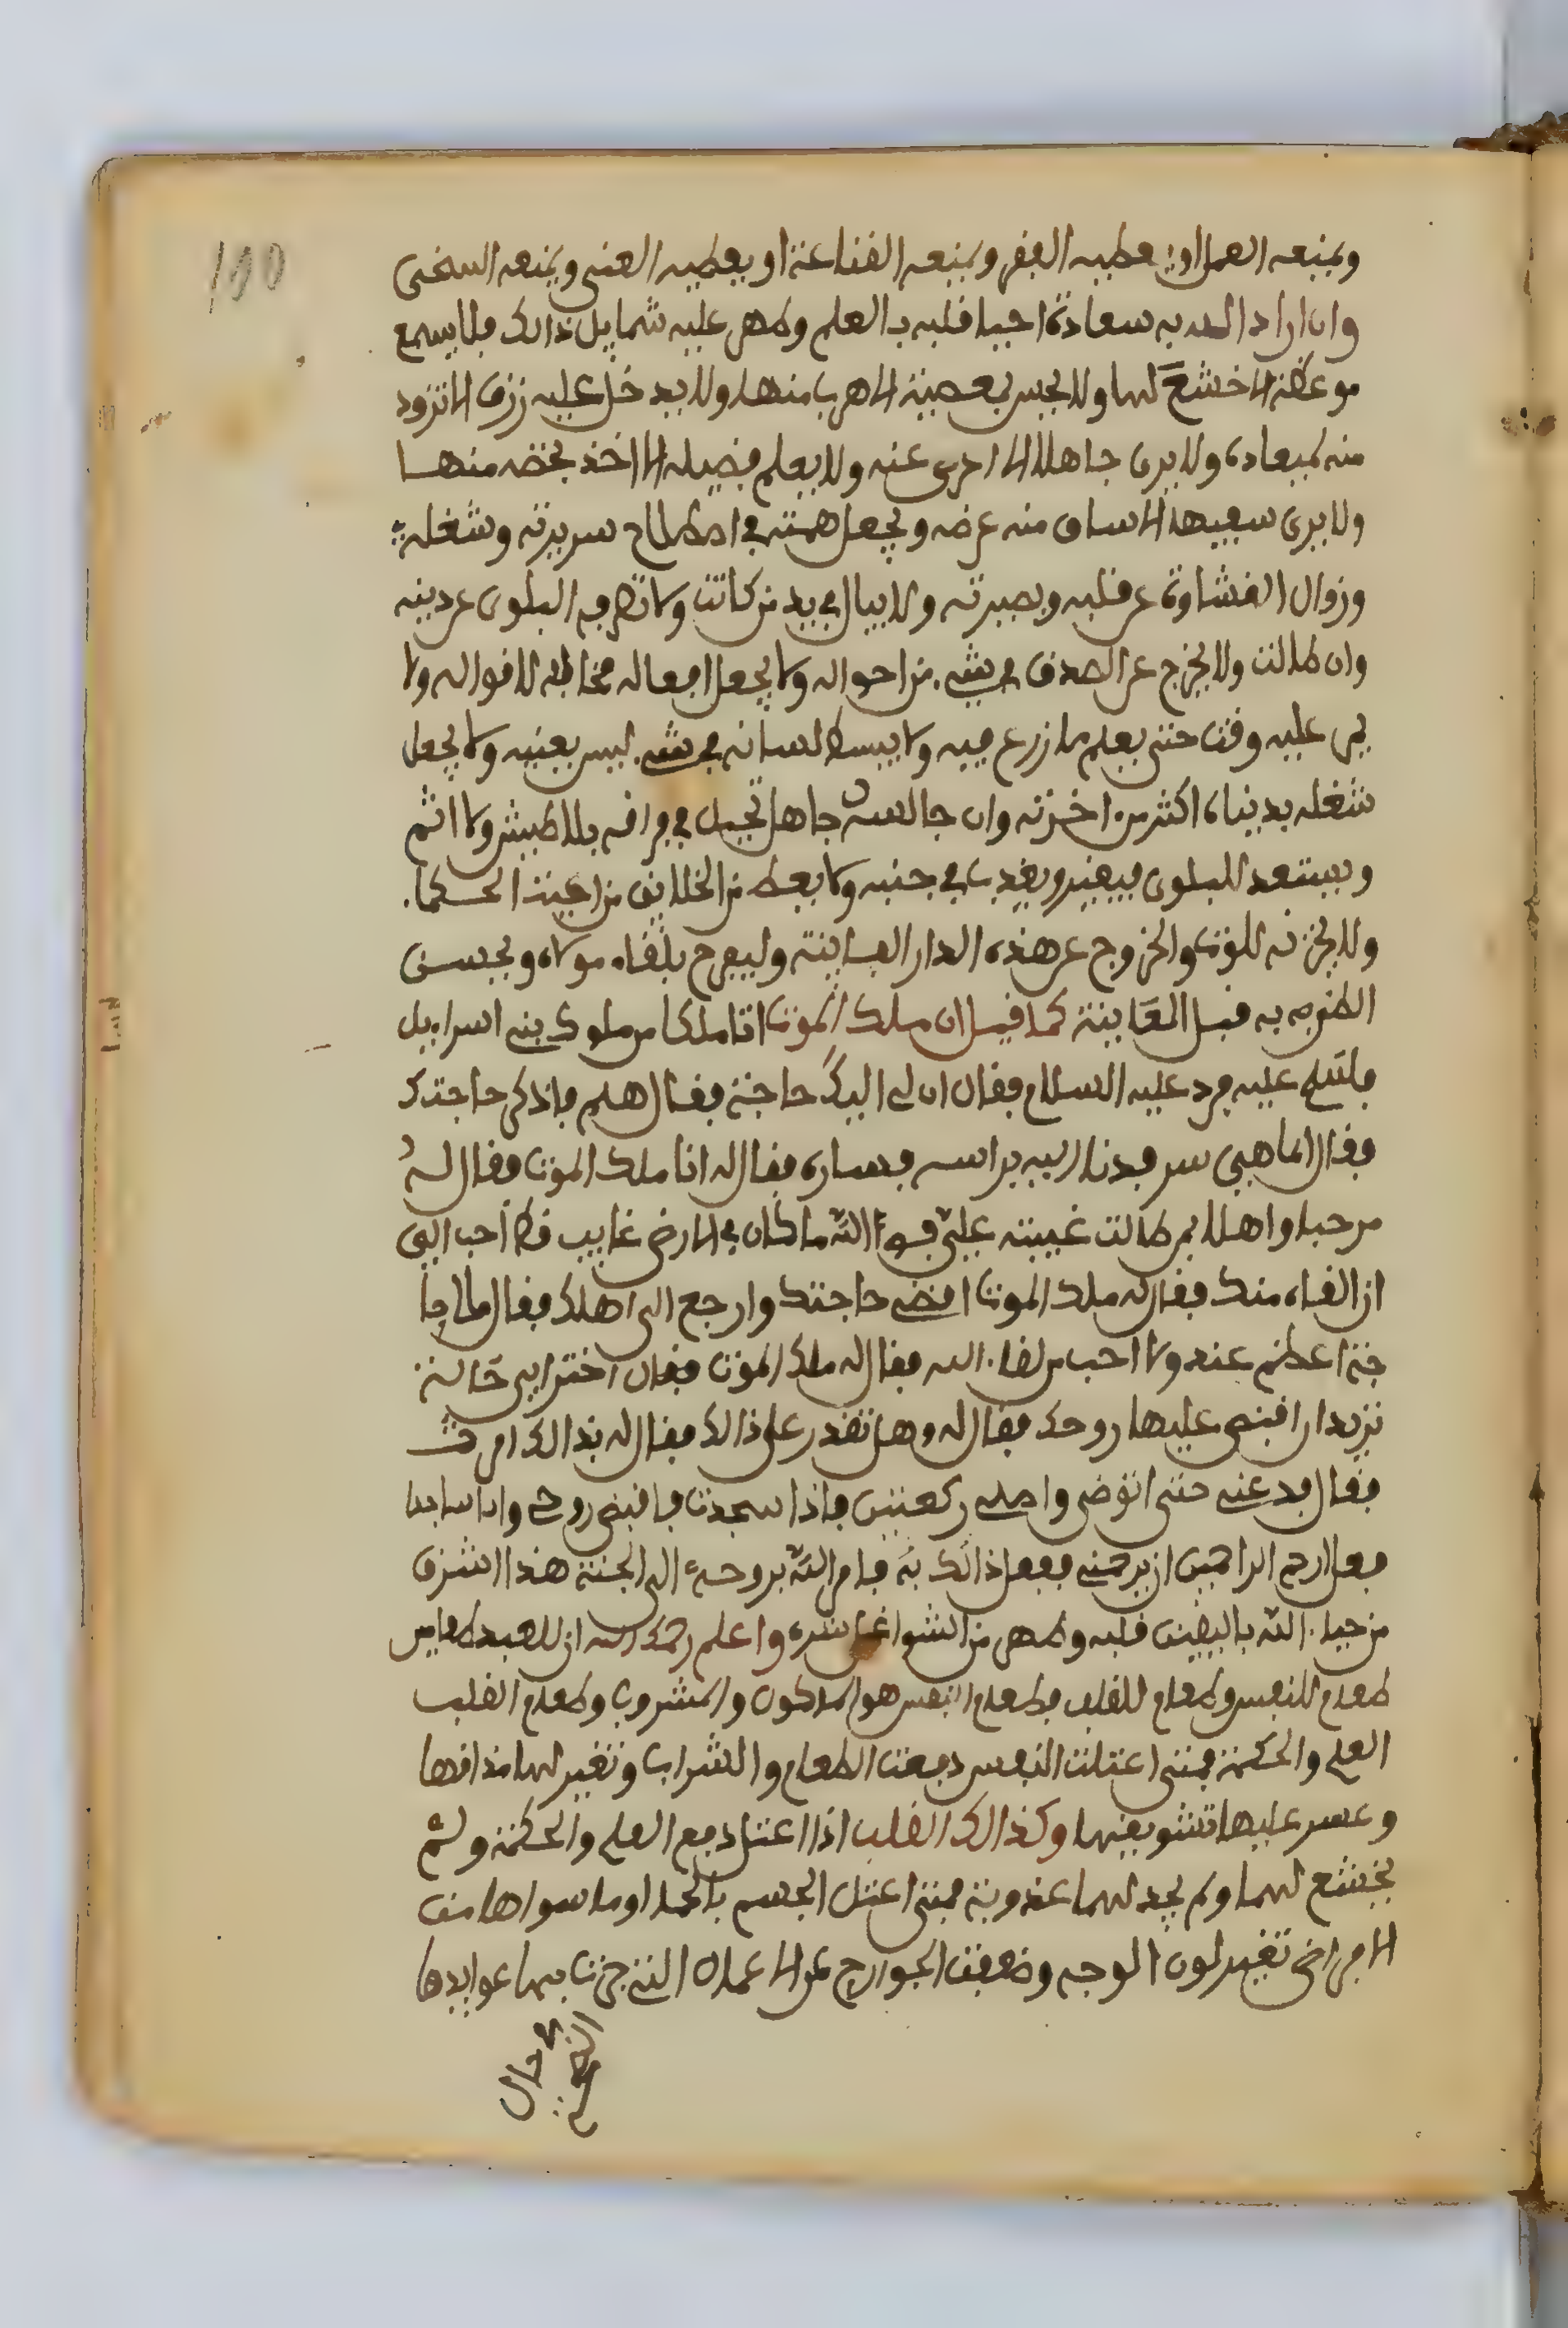 100
ويمنعه العمل او يعطيه الفقر ويمنعه القناعة او يعطيه الغنى ويمنعه السخى
وان اراد الله به سعادة احيا قلبه بالعلم وظهر عليه شمايل ذالك فلا يسمع
موعظة الا خشع لها ولا يحس بمعصية الا هرب منها ولا يدخل عليه رزق الا تزود
منه لميعاده ولا يرى جاهلا الا اعرض عنه ولا يعلم فضيلة الا اخذ بحضه منها
ولا يرى سفيها الا سان منه عرضه ويجعل همته في اصلاح سريرته وشغله
وزوال الغشاوة عن قلبه وبصيرته ولا يبال في يد من كانت ولا تطرفه البلوى عن دينه
وان طالت ولا يخرج عن الصدق في شيء من احواله ولا يجعل افعاله مخالفة لاقواله ولا
يمر عليه وقت حتى يعلم ما زرع فيه ولا يبسط لسانه في شيء ليس يعنيه ولا يجعل
شغله بدنياه اكثر من اخرته وان جالسه جاهل تحيل في فراقه بلا طيش ولا اثم
ويستعد للبلوى بيقين ويغدب في جنبه ولا يعطه من الخلايق من اعين الحكما
ولا يحزنه للموت والخروج عن هذه الدار الفانية وليفرح بلقاء مولاه ويحسن
الظن به قبل المعاينة كما قيل ان ملك الموت اتا ملكا من ملوك بني اسراءيل
فسلم عليه فرد عليه السلام فقال ان لي اليك حاجة فقال هلم فاذكر حاجتك
فقال انما هي سر فدنا اليه براسه فساره فقال له انا ملك الموت فقال له
مرحبا واهلا بمن طالت غيبته علي فوالله ما كان في الارض غايب قط احب الي
ان القاه منك فقال له ملك الموت اقض حاجتك وارجع الى اهلك فقال ما لي حا
جة اعظم عندي ولا احب من لقاء الله فقال له ملك الموت فقال اختر اي حالة
تريد ان اقبض عليها روحك فقال له وهل تقدر على ذالك فقال له بذالك امرت
فقال فدعني حتى اتوضى واصلي ركعتين فاذا سجدت فاقبض روحي وانا ساجد
لعل ارحم الراحمين ان يرحمني ففعل ذالك به فامر الله بروحه الى الجنة هذا اشرف
من حيا الله باليقين قلبه وطهر من الشواغل سره واعلم رحمك الله ان للعبد طعامين
طعام للنفس وطعام للقلب فطعام النفس هو الماكول والمشروب وطعام القلب
العلم والحكمة فمتى اعتلت النفس دفعت الطعام والشراب وتغير لها مذاقها
وعسر عليها تشويفها وكذالك القلب اذا اعتل دفع العلم والحكمة ولم
يخشع لهما ولم يجد لهما عذوبة فمتى اعتل الجسم بالحما او ما سواها من
الامراض تغير لون الوجه وضعفت الجوارح عن الاعمال التي جرت بها عوايدها